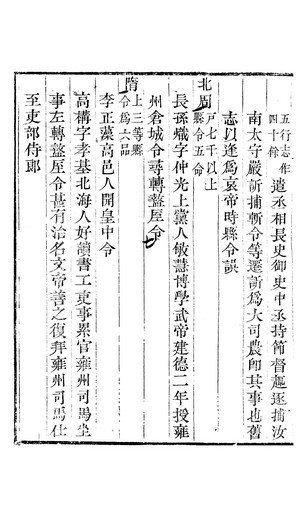 五行志作
四十餘
遣丞相長史御史中丞持節督趣逐捕汝
南太守嚴訢捕斬令等遷訢爲大司農卽其事也舊
志以逢爲哀帝時縣令誤
北周
戸七千以上
縣令五命
長孫熾字仲光上黨人敏慧博學武帝建德二年授雍
州倉城令尋轉盩厔令
隋
上三等縣
令爲六品
李正藻高邑人開皇中令
高構字孝基北海人好讀書工吏事累官雍州司馬坐
事左轉盩厔令甚有治名文帝善之復拜雍州司馬仕
至吏部侍郎